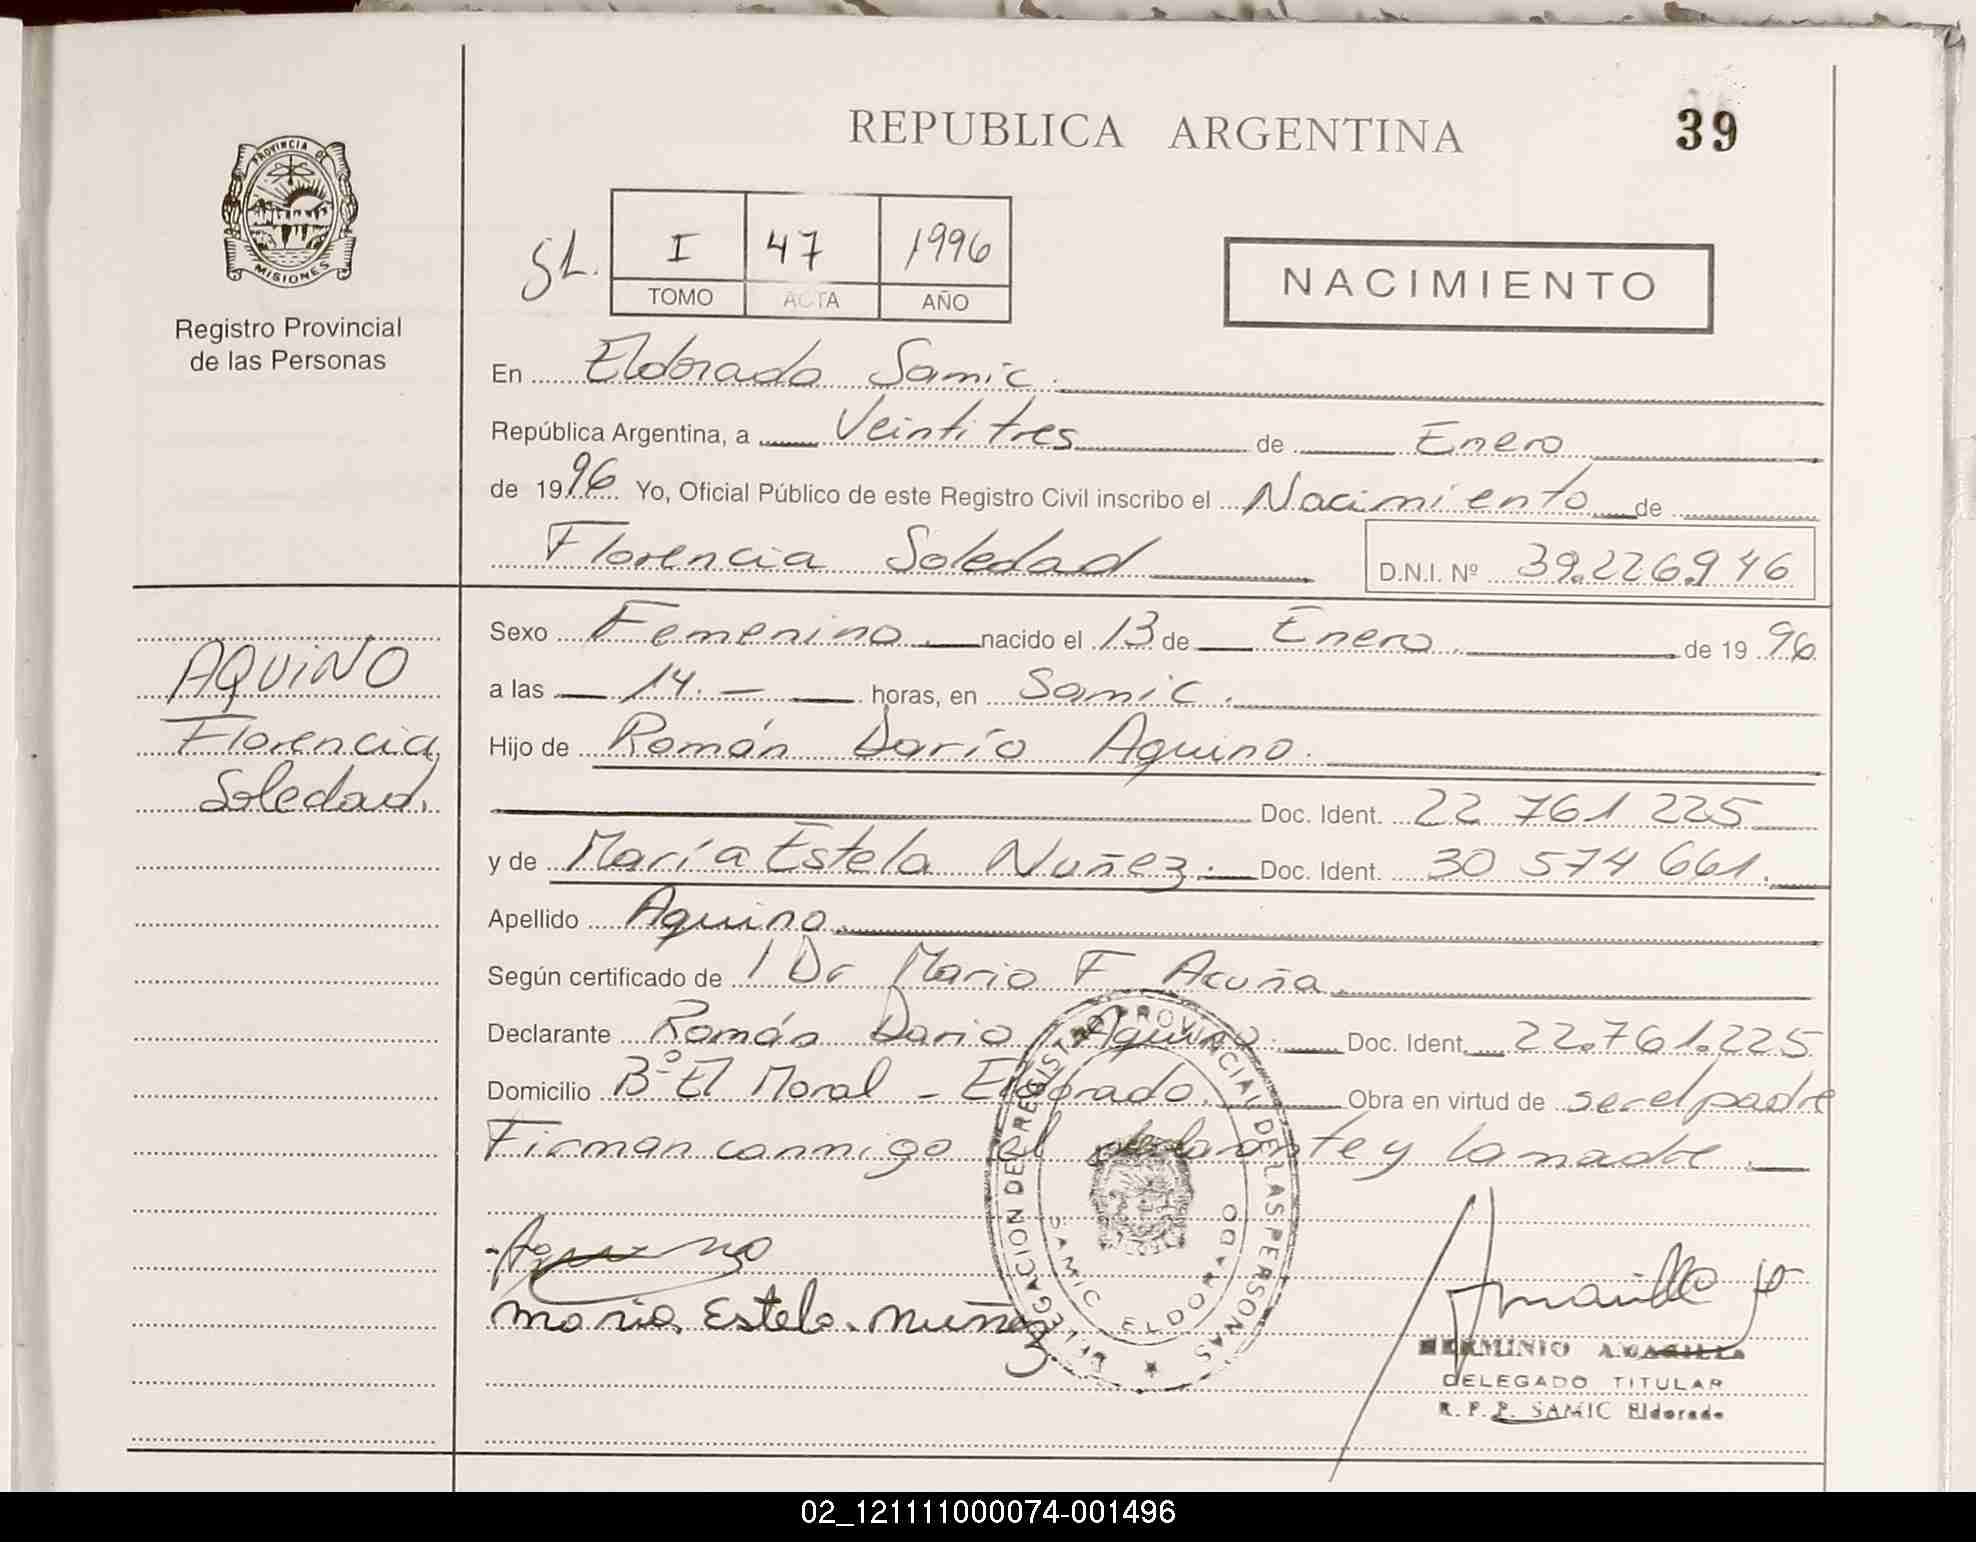 REPUBLICA ARGENTINA
39
PROVINCIA DE
MISIONES
Registro Provincial
de las Personas
I 47 1996
TOMO ACTA AÑO
NACIMIENTO
En Eldorado Samic.
República Argentina, a Veintitres de Enero
de 1996 Yo, Oficial Público de este Registro Civil inscribo el Nacimiento de
Florencia Soledad D.N.I. Nº 39.226.946
AQUINO
Florencia
Soledad.
Sexo Femenino. nacido el 13 de Enero. de 1996
a las 14.— horas, en Samic.
Hijo de Román Darío Aquino.
Doc. Ident. 22 761 225
y de María Estela Nuñez. Doc. Ident. 30 574 661.
Apellido Aquino.
Según certificado de / Dr Mario F Acuña.
Declarante Román Dario Aquino. Doc. Ident. 22.761.225
Domicilio Bº El Moral - Eldorado. Obra en virtud de ser el padre
Firman conmigo el declarante y la madre.
DELEGACION DEL REGISTRO PROVINCIAL DE LAS PERSONAS
SAMIC ELDORADO
Aquino
maria Estela nuñez
HERMINIO AMARILLA
DELEGADO TITULAR
R. P. P. SAMIC Eldorado
02_121111000074-001496